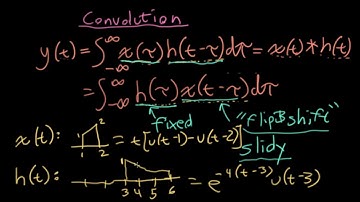 Convolution
y(t) = ∫_{-∞}^{∞} x(τ) h(t-τ) dτ = x(t) * h(t)
= ∫_{-∞}^{∞} h(τ) x(t-τ) dτ
fixed "flip & shift"
slidy
x(t): 1 2 1 2 = t[u(t-1) - u(t-2)]
h(t): 3 4 5 6 = e^{-4(t-3)} u(t-3)